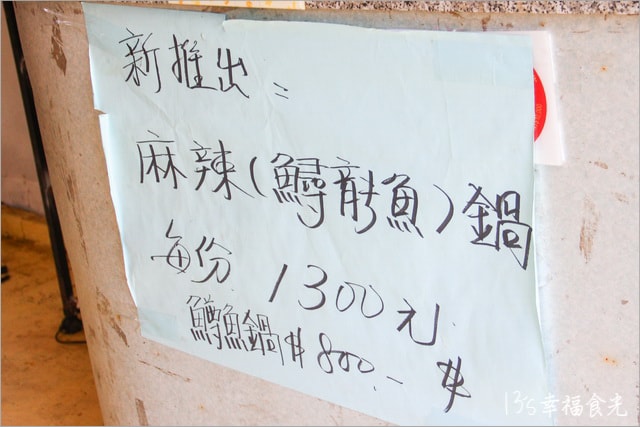 新推出=
麻辣(鱘龍魚)鍋
每份 1300元.
鱒魚鍋$800.-
13's幸福食光